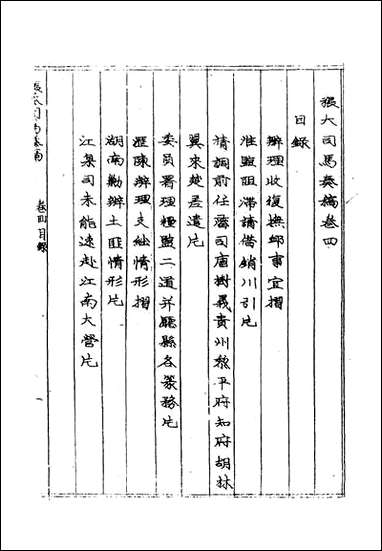 張大司馬奏稿卷四
目錄
辦理收復撫卹事宜摺
淮鹽阻滯請借銷川引片
請調前任藩司唐樹義貴州黎平府知府胡林
翼來楚差遣片
委員署理糧鹽二道并廳縣各篆務片
瀝陳辦理支絀情形摺
湖南勦辦土匪情形片
江臬司未能速赴江南大營片
張大司馬奏稿
卷四目錄
一